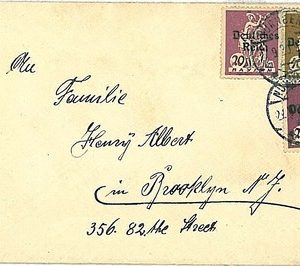 An
Familie
Henry Albert
in Brooklyn N. J.
356. 82. the Street
Deutsches
Reich
20
BAYERN
20